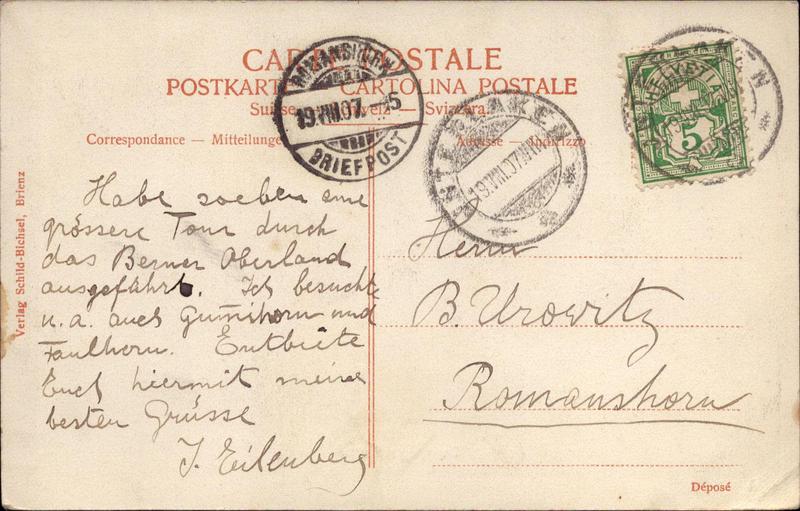 CARTE POSTALE
POSTKARTE — CARTOLINA POSTALE
Suisse — Schweiz — Svizzera
Correspondance — Mitteilungen
Adresse — Indirizzo
ROMANSHORN
19.VIII.07. — 5
BRIEFPOST
INTERLAKEN
19.VIII.07.
HELVETIA
5
Verlag Schild-Bichsel, Brienz
Habe soeben eine
grössere Tour durch
das Berner Oberland
ausgeführt. Ich besuchte
u. a. auch Gumihorn und
Faulhorn. Entbiete
Euch hiermit meine
besten Grüsse
J. Eilenberg
Herrn
B. Urowitz
Romanshorn
Déposé